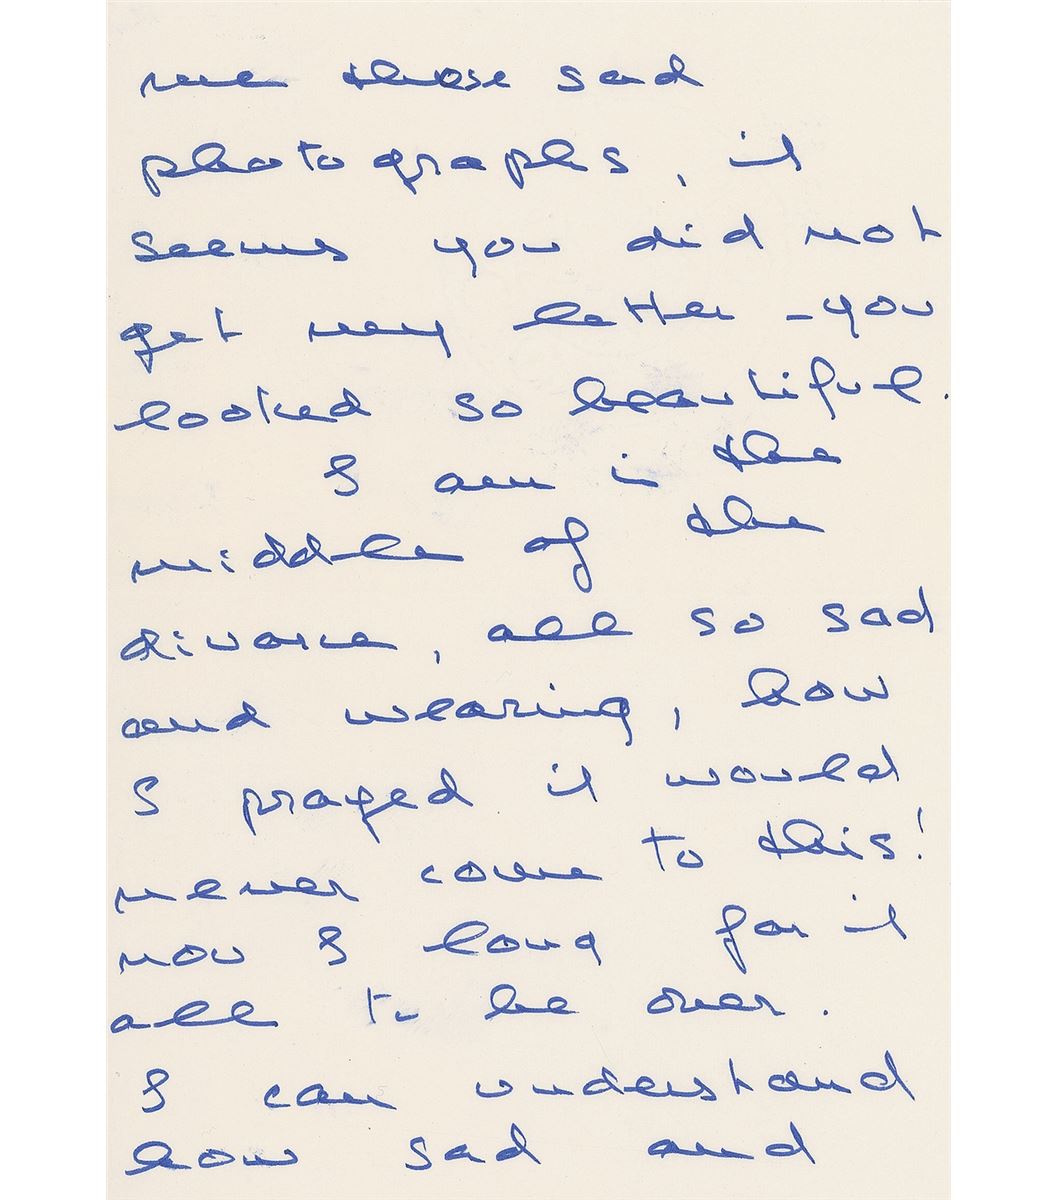 me these sad
photographs, it
seems you did not
get my letter - you
looked so beautiful.
I am in the
middle of the
divorce, all so sad
and wearing, how
I prayed it would
never come to this!
now I long for it
all to be over.
I can understand
how sad and